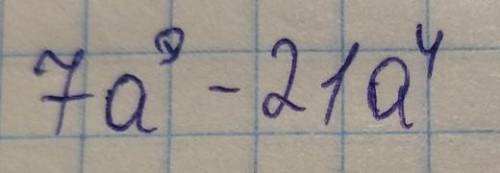 7a³ - 21a⁴